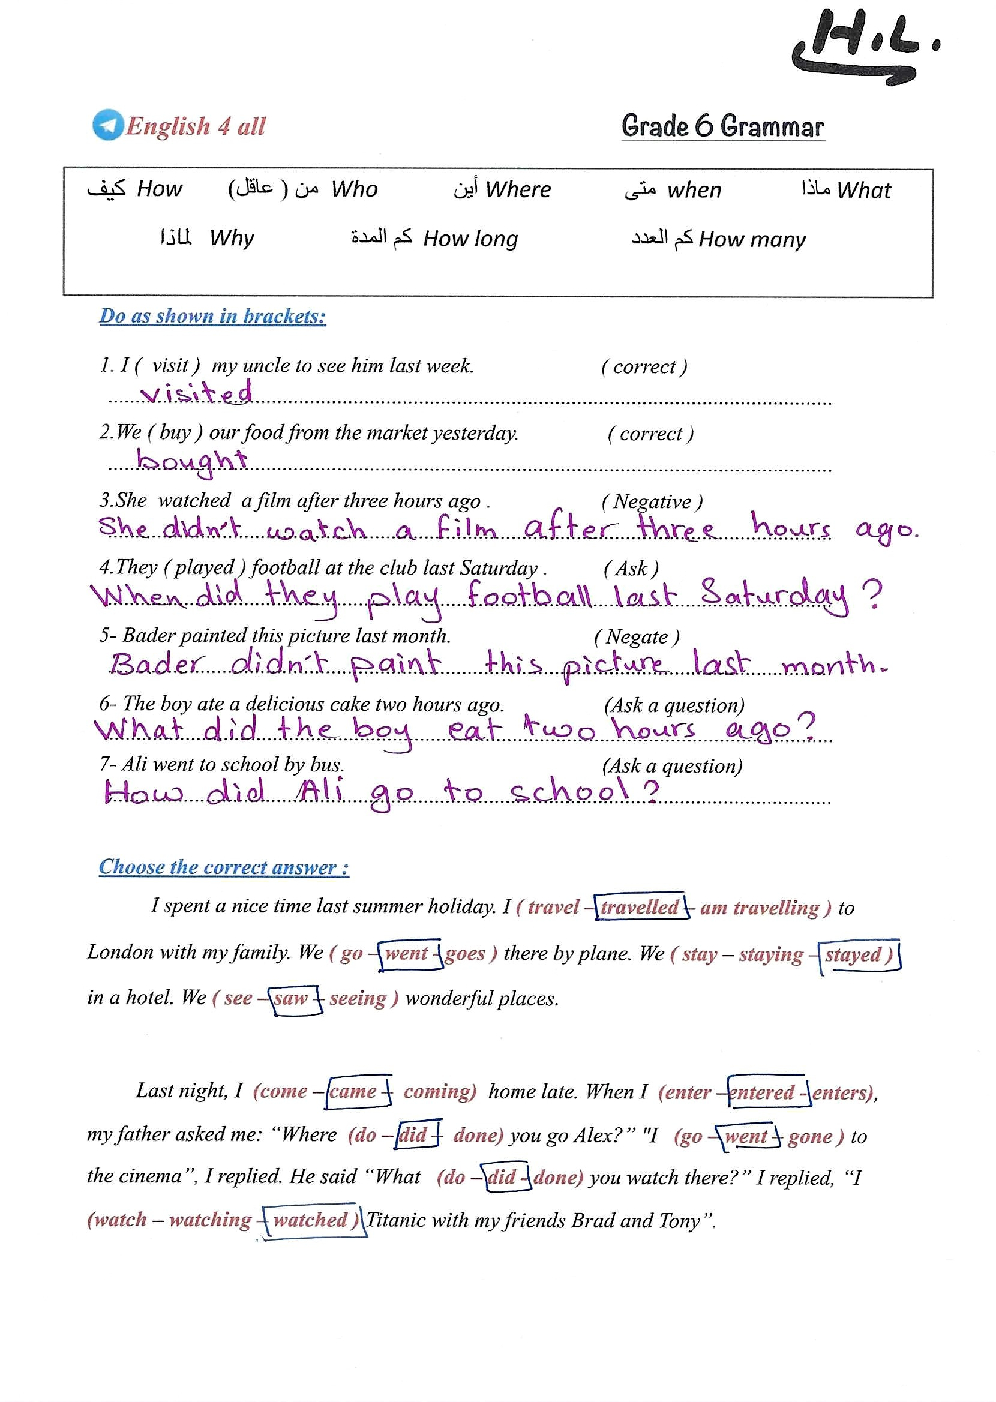 H.L.
English 4 all Grade 6 Grammar
كيف How من ( عاقل) Who أين Where متى when ماذا What
لماذا Why كم المدة How long كم العدد How many
Do as shown in brackets:
1. I ( visit ) my uncle to see him last week. ( correct )
visited
2.We ( buy ) our food from the market yesterday. ( correct )
bought
3.She watched a film after three hours ago . ( Negative )
She didn't watch a film after three hours ago.
4.They ( played ) football at the club last Saturday . ( Ask )
When did they play football last Saturday ?
5- Bader painted this picture last month. ( Negate )
Bader didn't paint this picture last month.
6- The boy ate a delicious cake two hours ago. (Ask a question)
What did the boy eat two hours ago?
7- Ali went to school by bus. (Ask a question)
How did Ali go to school?
Choose the correct answer :
I spent a nice time last summer holiday. I ( travel – travelled – am travelling ) to
London with my family. We ( go – went – goes ) there by plane. We ( stay – staying – stayed )
in a hotel. We ( see – saw – seeing ) wonderful places.
Last night, I (come – came – coming) home late. When I (enter – entered - enters),
my father asked me: “Where (do – did – done) you go Alex?” "I (go – went – gone ) to
the cinema”, I replied. He said “What (do – did - done) you watch there?” I replied, “I
(watch – watching – watched ) Titanic with my friends Brad and Tony”.